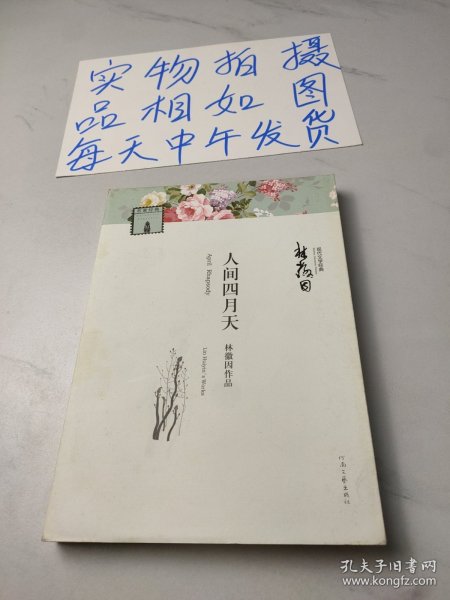 实物拍摄
品相如图
每天中午发货
林徽因
现代文学经典
人间四月天
April Rhapsody
林徽因作品
Lin Huiyin's Works
河南文艺出版社
孔夫子旧书网
www.kongfz.com